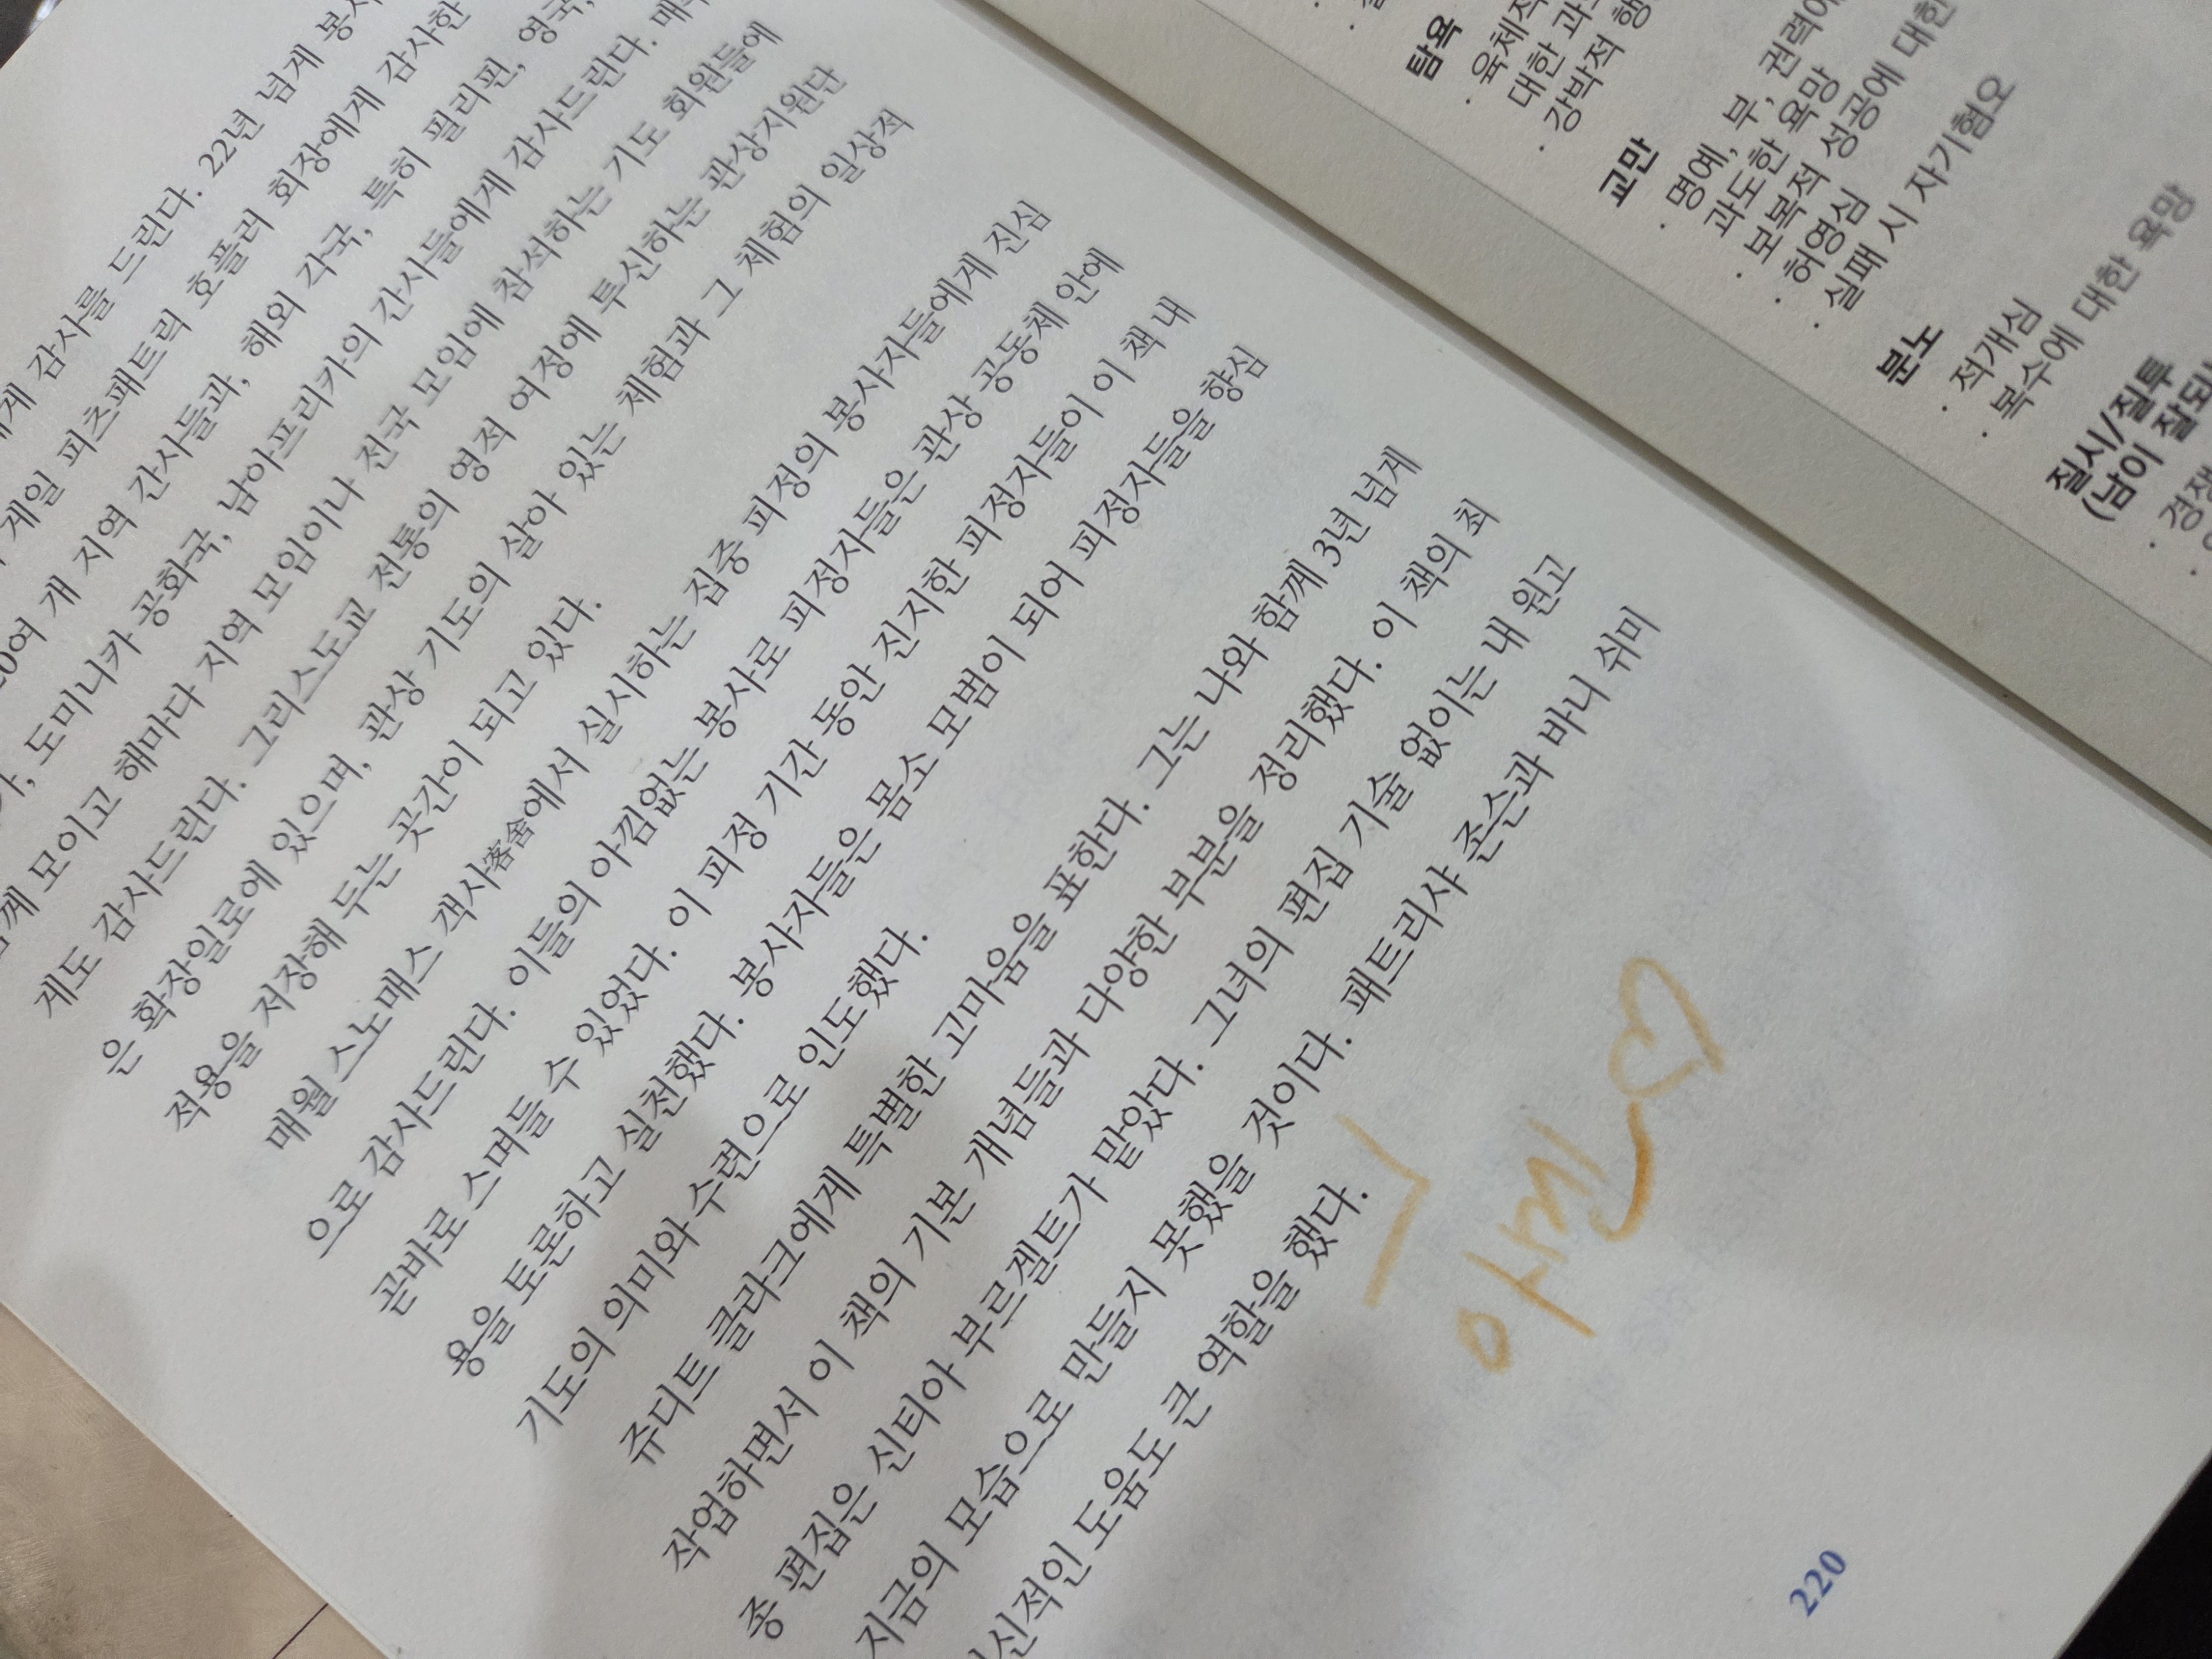 게 감사를 드린다. 22년 넘게
게일 피츠패트릭 호플러 회장에게 감사한
여 개 지역 간사들과, 해외 각국, 특히 필리핀, 영국,
도미니카 공화국, 남아프리카의 간사들에게 감사드린다.
모이고 해마다 지역 모임이나 전국 모임에 참석하는 기도 회원들에
게도 감사드린다. 그리스도교 전통의 영적 여정에 투신하는 관상지원단
은 확장일로에 있으며, 관상 기도의 살아 있는 체험과 그 체험의 일상적
적용을 저장해 두는 곳간이 되고 있다.
매월 스노매스 객사客舍에서 실시하는 집중 피정의 봉사자들에게 진심
으로 감사드린다. 이들의 아낌없는 봉사로 피정자들은 관상 공동체 안에
곧바로 스며들 수 있었다. 이 피정 기간 동안 진지한 피정자들이 이 책 내
용을 토론하고 실천했다. 봉사자들은 몸소 모범이 되어 피정자들을 향심
기도의 의미와 수련으로 인도했다.
쥬디트 클라크에게 특별한 고마움을 표한다. 그는 나와 함께 3년 넘게
작업하면서 이 책의 기본 개념들과 다양한 부분을 정리했다. 이 책의 최
종 편집은 신티아 부르젤트가 맡았다. 그녀의 편집 기술 없이는 내 원고
지금의 모습으로 만들지 못했을 것이다. 패트리샤 존슨과 바니 쉬미
신적인 도움도 큰 역할을 했다.
220
탐욕
· 육체적
대한
· 강박적
교만
· 명예, 부, 권력에
과도한 욕망
· 모복적 성공에 대한
· 허영심
· 실패 시 자기혐오
분노
· 적개심
· 복수에 대한 욕망
질시/질투
(남이
· 경쟁